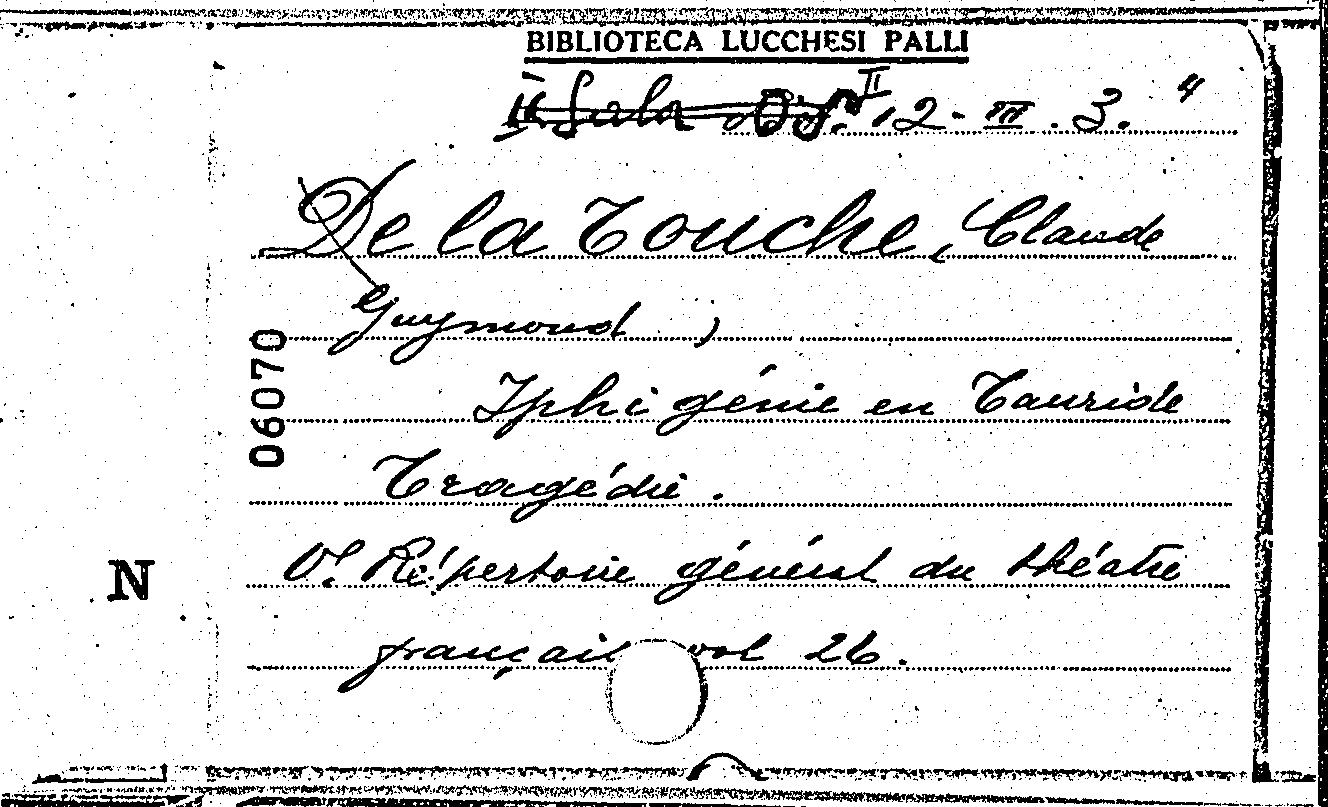 BIBLIOTECA LUCCHESI PALLI
II 12 - III . 3. 4
De la Touche, Claude
Guymond ,
Iphigénie en Tauride
Tragédie .
Vi Répertoire général du théatre
français vol 26 .
06070
N